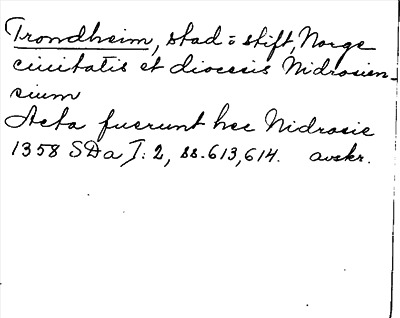 Trondheim, stad = stift, Norge
ciuitatis et diocesis Nidrosien-
sium
Acta fuerunt hec Nidrosie
1358 SDa I: 2, ss. 613, 614. avskr.